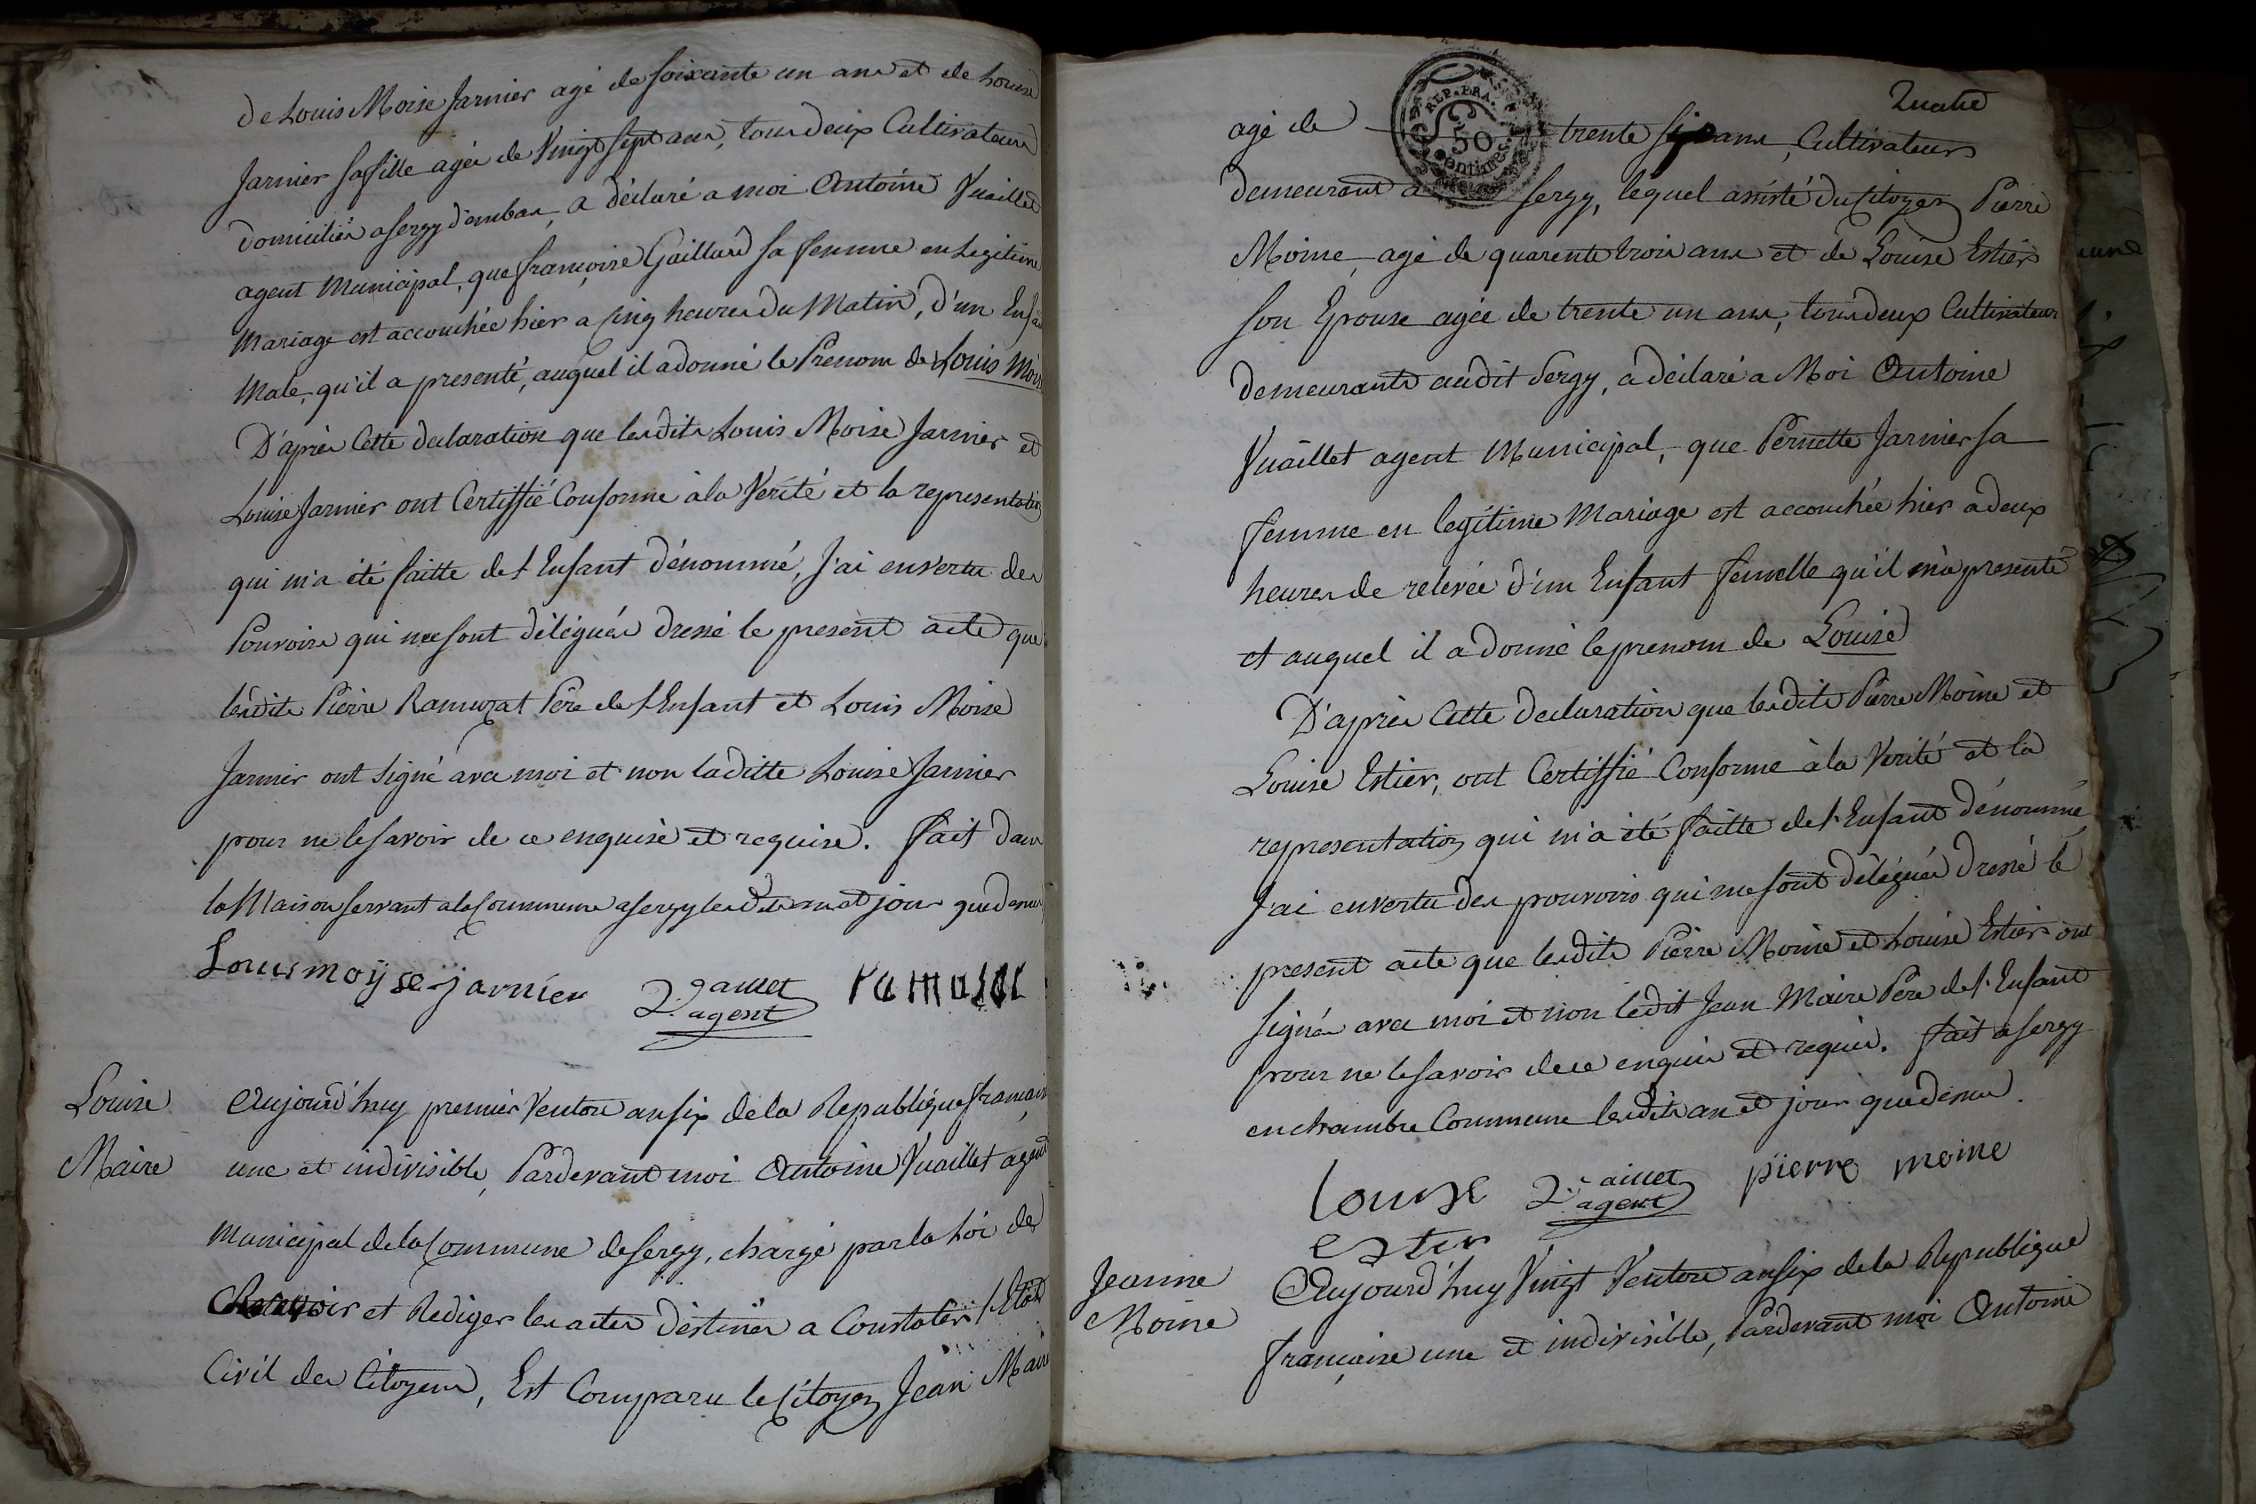 de Louis Moise Jarnier agé de soixante un ans et de Louise
Jarnier sa fille agée de Vingt sept ans, tous deux Cultivateurs
domiciliés a Sergy d'embas, a déclaré a moi Antoine Vuaillet
agent Municipal, que françoise Gaillard sa femme en Legitime
Mariage est accouchée hier a cinq heures du Matin, d'un Enfan
Male, qu'il a presenté, auquel il a donné le Prenom de Louis Mois
D'après Cette declaration que lesdits Louis Moise Jarnier et
Louise Jarnier ont Certiffié Conforme à la Verité et la representation
qui m'a été faitte de l'Enfant dénommé, J'ai en vertu des
Pouvoirs qui me sont délégués dressé le present acte que
lesdits Pierre Ramuzat Père de l'Enfant et Louis Moise
Jarnier ont signé avec moi et non laditte Louise Jarnier
pour ne le savoir de ce enquise et requise. fait dans
la Maison servant a la Commune a Sergy lesdits an et jour que dessus
Louis moÿse jarnier Vuaillet agent ramusat
Louise Maire
Aujourd'huy premier Ventose an six de la Republique française
une et indivisible, Pardevant moi Antoine Vuaillet agent
Municipal de la Commune de Sergy, chargé par la Loi de
Recevoir et Rediger les actes destinés a Constater l'Etat
Civil des Citoyens, Est Comparu le Citoyen Jean Maire
Quatre
REP. FRA.
50
centimes
agé de trente six ans, Cultivateur
demeurant a Sergy, lequel assisté du Citoyen Pierre
Moine, agé de quarente trois ans et de Louise Estier
son Epouse agée de trente un ans, tous deux Cultivateurs
demeurants audit Sergy, a déclaré a Moi Antoine
Vuaillet agent Municipal, que Pernette Jarnier sa
femme en legitime Mariage est accouchée hier a deux
heures de relevée d'un Enfant femelle qu'il m'a presenté
et auquel il a donné le prenom de Louise
D'après Cette declaration que lesdits Pierre Moine et
Louise Estier, ont Certiffié Conforme à la Verité et la
representation qui m'a été faitte de l'Enfant dénommé
J'ai en vertu des pouvoirs qui me sont délégués dressé le
present acte que lesdits Pierre Moine et Louise Estier ont
signés avec moi et non ledit Jean Maire Père de l'Enfant
pour ne le savoir de ce enquis et requis. fait a Sergy
en chambre Commune lesdits an et jour que dessus.
Louise Vuaillet agent pierre moine
Ester
Jeanne Moine
Aujourd'huy Vingt Ventose an six de la Republique
française une et indivisible, Pardevant moi Antoine